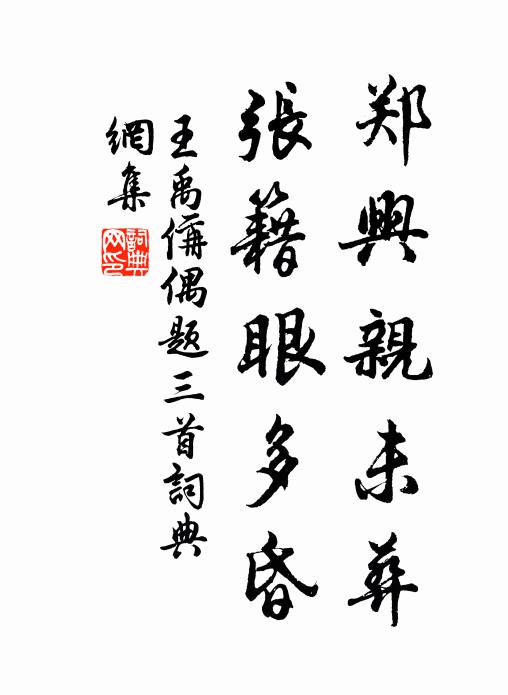 郑興親未葬
張籍眼多昏
王禹偁偶题三首詞典
網集
詞典网印